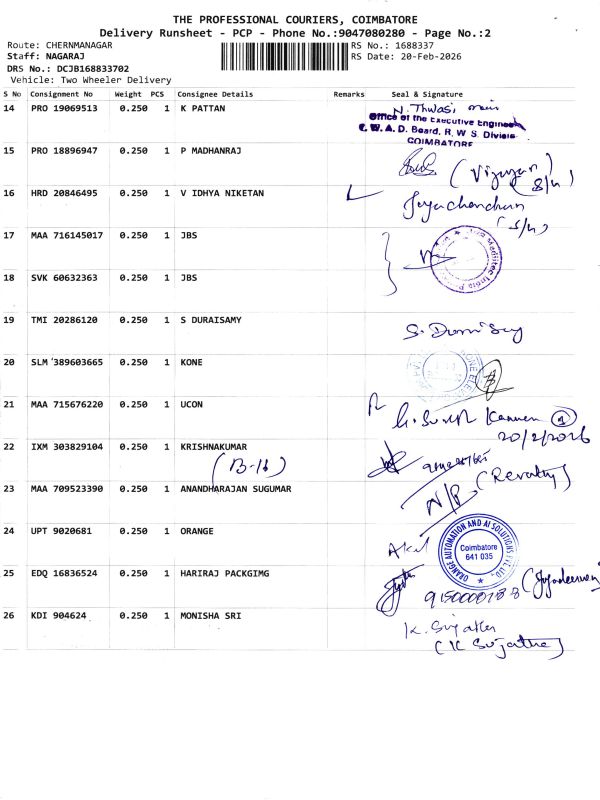 THE PROFESSIONAL COURIERS, COIMBATORE
Delivery Runsheet - PCP - Phone No.:9047080280 - Page No.:2
Route: CHERNMANAGAR RS No.: 1688337
Staff: NAGARAJ RS Date: 20-Feb-2026
DRS No.: DCJB168833702
Vehicle: Two Wheeler Delivery
S No Consignment No Weight PCS Consignee Details Remarks Seal & Signature
14 PRO 19069513 0.250 1 K PATTAN
Office of the Executive Engineer
T. W. A. D. Board, R. W. S. Division
COIMBATORE
15 PRO 18896947 0.250 1 P MADHANRAJ
(Vijayan)
(S/n)
16 HRD 20846495 0.250 1 V IDHYA NIKETAN
Jayachandran
(S/n)
17 MAA 716145017 0.250 1 JBS
18 SVK 60632363 0.250 1 JBS
19 TMI 20286120 0.250 1 S DURAISAMY
20 SLM 389603665 0.250 1 KONE
21 MAA 715676220 0.250 1 UCON
20/2/2026
22 IXM 303829104 0.250 1 KRISHNAKUMAR
(B-16)
(Revathy)
23 MAA 709523390 0.250 1 ANANDHARAJAN SUGUMAR
N/P
24 UPT 9020681 0.250 1 ORANGE
Akil
ORANGE AUTOMATION AND AI SOLUTIONS PVT LTD
Coimbatore
641 035
25 EDQ 16836524 0.250 1 HARIRAJ PACKGIMG
26 KDI 904624 0.250 1 MONISHA SRI
K. Sujatha
(K Sujatha)